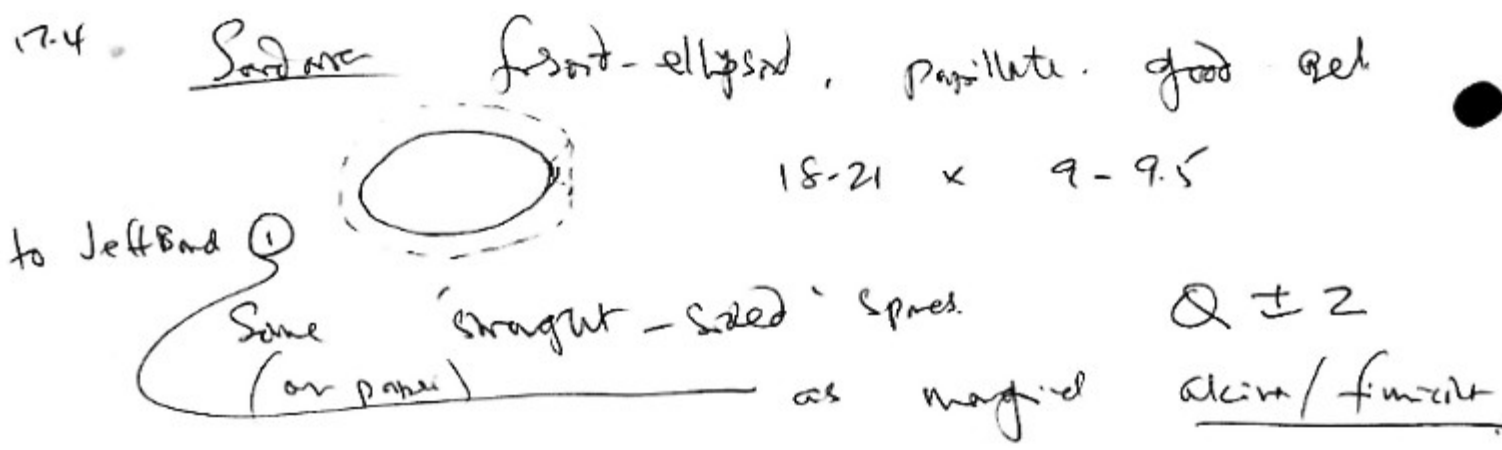 17.4. Sordaria fusoid-ellipsoid, papillate. good gel
18-21 x 9-9.5
to Jeff Bond ①
Some 'straight-sided' spores. Q ± 2
(on paper) as marginal alcina/fimicola